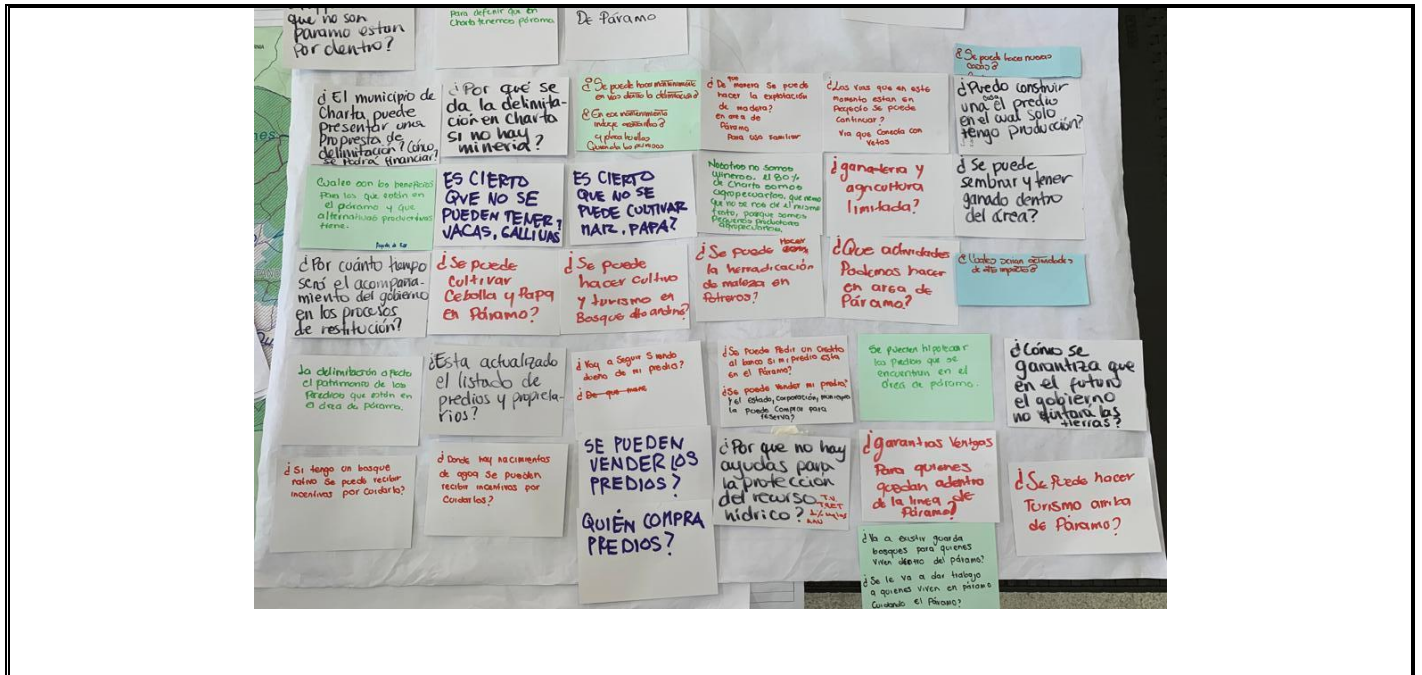 que no son
paramo estan
por dentro?
para definir que en
Charta tenemos páramo.
De Páramo
¿Se puede hacer nuevas
casas?
¿El municipio de
Charta, puede
presentar una
propuesta de
delimitación? ¿Cómo
se podrá financiar?
¿Por qué se
da la delimita-
ción en Charta
si no hay
minería?
¿Se puede hacer mantenimiento
en vias dentro la delimitación?
¿En ese mantenimiento
incluye
y placa huellas
¿De que manera se puede
hacer la explotación
de madera?
en area de
Páramo
Para uso familiar
¿Las vias que en este
momento estan en
Proyecto se puede
Continuar?
Via que conecta con
Vetas
¿Puedo construir
una casa el predio
en el cual solo
tengo producción?
Cuales son los beneficios
Para los que están en
el páramo y que
alternativas productivas
tiene.
ES CIERTO
QVE NO SE
PUEDEN TENER
VACAS, GALLINAS
ES CIERTO
QUE NO SE
PUEDE CULTIVAR
MAIZ, PAPA?
Nosotros no somos
Mineros. el 80%
de Charta somos
agropecuarios,
que no se nos de el mismo
trato, porque somos
Pequeños productores
agropecuarios.
¿ganaderia y
agricultura
limitada?
¿Se puede
sembrar y tener
ganado dentro
del área?
¿Por cuánto tiempo
será el acompaña-
miento del gobierno
en los procesos
de restitución?
¿Se puede
cultivar
Cebolla y Papa
en Páramo?
¿Se puede
hacer cultivo
y turismo en
Bosque alto andino?
¿Se puede Hacer
la herradicación
de maleza en
Potreros?
¿Que actividades
Podemos hacer
en area de
Páramo?
¿Cuales serian actividades
de alto impacto?
La delimitación afecta
el patrimonio de los
Predios que están en
el área de páramo.
¿Esta actualizado
el listado de
predios y propieta-
rios?
¿Voy a Seguir Siendo
dueño de mi predio?
¿De que mane
¿Se Puede Pedir un Credito
al banco si mi predio esta
en el Páramo?
¿Se puede Vender mi predio?
Y el estado, corporación, municipio
la puede Comprar para
reserva?
Se pueden hipotecar
los Predios que se
encuentran en el
área de páramo.
¿Cómo se
garantiza que
en el futuro
el gobierno
no quitara las
tierras?
¿Si tengo un bosque
nativo se puede recibir
incentivos por Cuidarlo?
¿Donde hay nacimientos
de agua Se pueden
recibir incentivos por
Cuidarlos?
SE PUEDEN
VENDER LOS
PREDIOS?
QUIÉN COMPRA
PREDIOS?
¿Por que no hay
ayudas para
la protección
del recurso
hídrico?
¿garantias Ventajas
Para quienes
quedan adentro
de la linea de
Páramo?
¿Se Puede hacer
Turismo arriba
de Páramo?
¿Va a existir guarda
bosques para quienes
Viven dentro del páramo?
¿Se le va a dar trabajo
a quienes viven en páramo
Cuidando el Páramo?